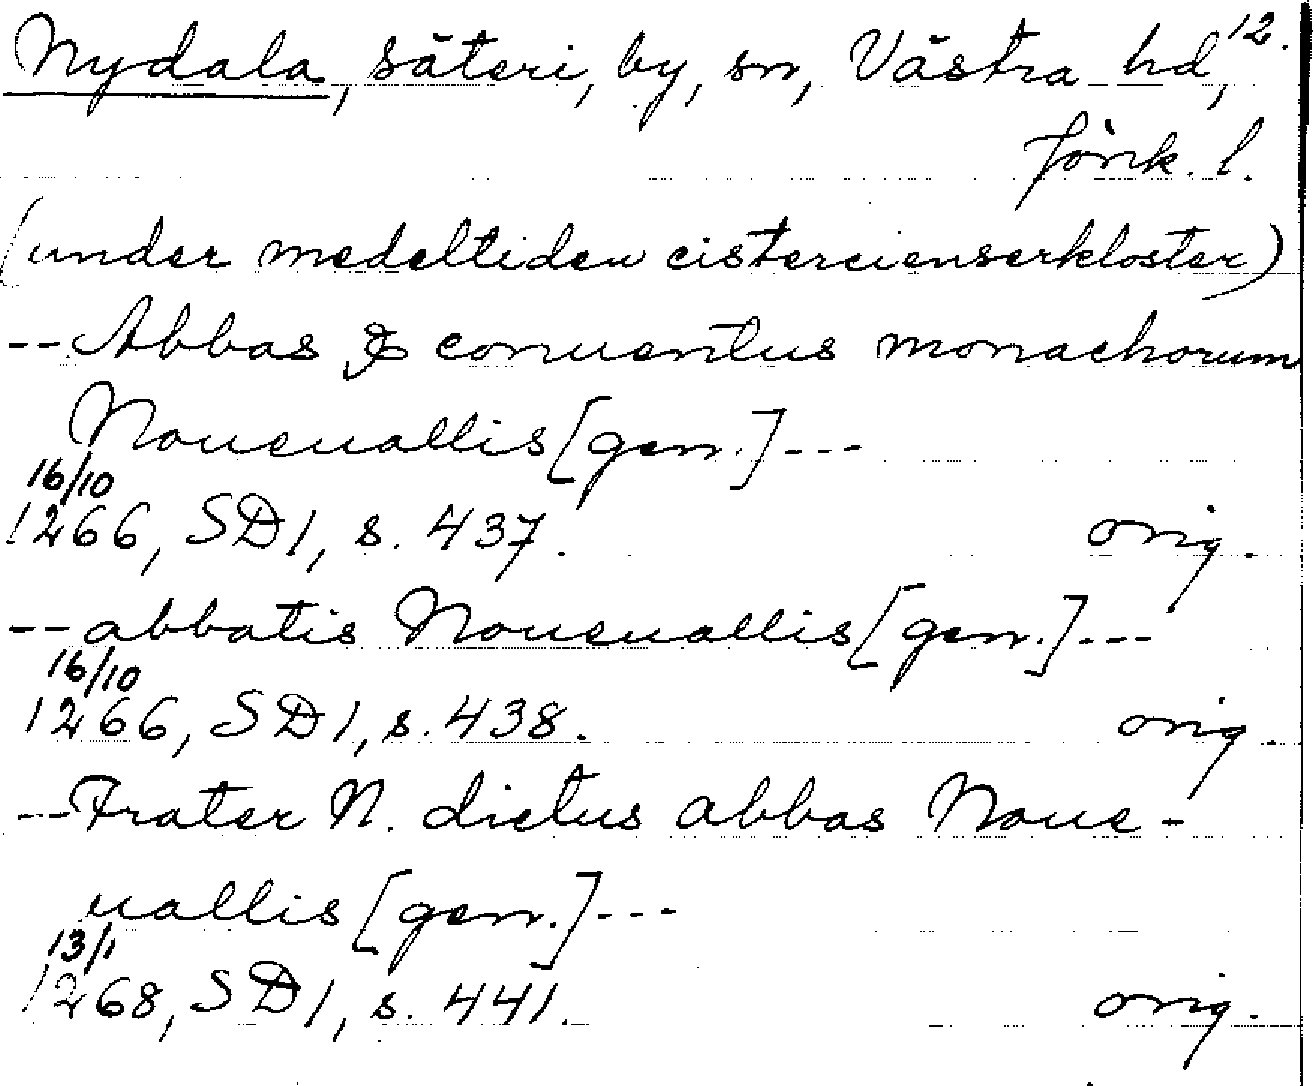 Nydala, säteri, by, sn, Västra hd, 12.
Jönk. l.
(under medeltiden cistercienserkloster)
-- Abbas & conuentus monachorum
Noueuallis [gen.] ---
16/10
1266, SD 1, s. 437. orig.
-- abbatis Noueuallis [gen.] ---
16/10
1266, SD 1, s. 438. orig.
-- Frater N. dictus abbas Noue-
uallis [gen.] ---
13/1
1268, SD 1, s. 441. orig.